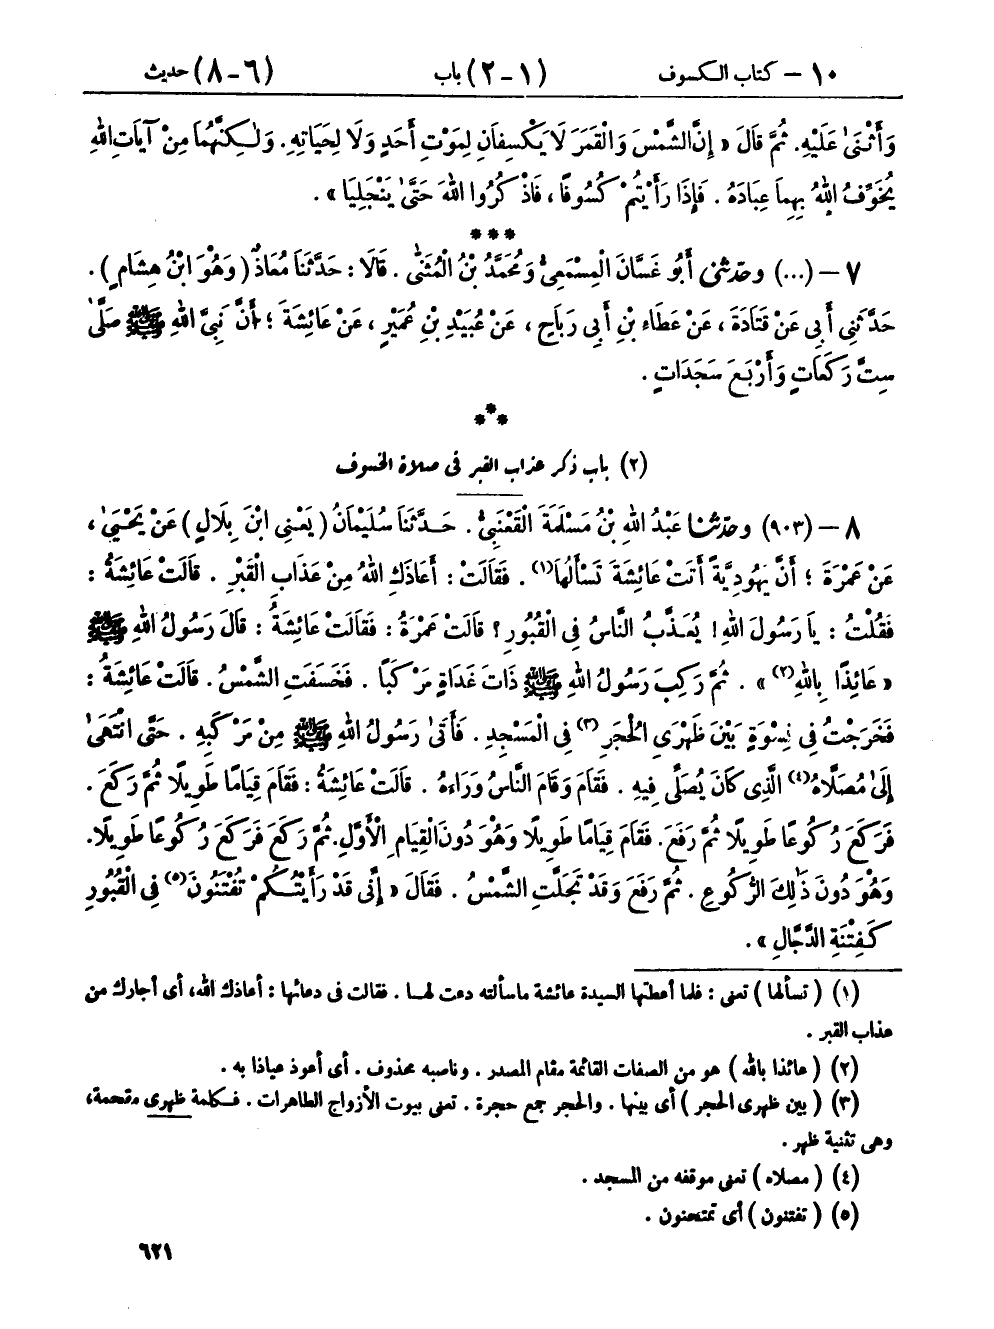 ١٠ – كتاب الكسوف (١–٢) باب (٦–٨) حديث
وَأَثْنَىٰ عَلَيْهِ. ثُمَّ قَالَ « إِنَّ الشَّمْسَ وَالْقَمَرَ لَا يَكْسِفَانِ لِمَوْتِ أَحَدٍ وَلَا لِحَيَاتِهِ. وَلَـٰكِنَّهُمَا مِنْ آيَاتِ اللهِ
يُخَوِّفُ اللهُ بِهِمَا عِبَادَهُ . فَإِذَا رَأَيْتُمْ كُسُوفًا ، فَاذْكُرُوا اللهَ حَتَّىٰ يَنْجَلِيَا » .
***
٧ – (...) وحدّثني أَبُو غَسَّانَ الْمِسْمَعِيُّ وَمُحَمَّدُ بْنُ الْمُثَنَّى . قَالَا : حَدَّثَنَا مُعَاذٌ ( وَهُوَ ابْنُ هِشَامٍ ) .
حَدَّثَنِي أَبِي عَنْ قَتَادَةَ ، عَنْ عَطَاءِ بْنِ أَبِي رَبَاحٍ ، عَنْ عُبَيْدِ بْنِ عُمَيْرٍ ، عَنْ عَائِشَةَ ؛ أَنَّ نَبِيَّ اللهِ ﷺ صَلَّىٰ
سِتَّ رَكَعَاتٍ وَأَرْبَعَ سَجَدَاتٍ .
***
(٢) باب ذكر عذاب القبر فى صلاة الخسوف
٨ – (٩٠٣) وحدّثنا عَبْدُ اللهِ بْنُ مَسْلَمَةَ الْقَعْنَبِيُّ . حَـدَّثَنَا سُلَيْمَانُ ( يَعْنِي ابْنَ بِلَالٍ ) عَنْ يَحْيَىٰ ،
عَنْ عَمْرَةَ ؛ أَنَّ يَهُودِيَّةً أَتَتْ عَائِشَةَ تَسْأَلُهَا(١) . فَقَالَتْ : أَعَاذَكِ اللهُ مِنْ عَذَابِ الْقَبْرِ . قَالَتْ عَائِشَةُ :
فَقُلْتُ : يَا رَسُولَ اللهِ ! يُعَذَّبُ النَّاسُ فِي الْقُبُورِ ؟ قَالَتْ عَمْرَةُ : فَقَالَتْ عَائِشَةُ : قَالَ رَسُولُ اللهِ ﷺ
« عَائِذًا بِاللهِ(٢) » . ثُمَّ رَكِبَ رَسُولُ اللهِ ﷺ ذَاتَ غَدَاةٍ مَرْكَبًا . فَخَسَفَتِ الشَّمْسُ . قَالَتْ عَائِشَةُ :
فَخَرَجْتُ فِي نِسْوَةٍ بَيْنَ ظَهْرَيِ الْحُجَرِ(٣) فِي الْمَسْجِدِ . فَأَتَىٰ رَسُولُ اللهِ ﷺ مِنْ مَرْكَبِهِ . حَتَّى انْتَهَىٰ
إِلَىٰ مُصَلَّاهُ(٤) الَّذِي كَانَ يُصَلِّي فِيهِ . فَقَامَ وَقَامَ النَّاسُ وَرَاءَهُ . قَالَتْ عَائِشَةُ : فَقَامَ قِيَامًا طَوِيلًا ثُمَّ رَكَعَ .
فَرَكَعَ رُكُوعًا طَوِيلًا ثُمَّ رَفَعَ . فَقَامَ قِيَامًا طَوِيلًا وَهُوَ دُونَ الْقِيَامِ الْأَوَّلِ. ثُمَّ رَكَعَ فَرَكَعَ رُكُوعًا طَوِيلًا.
وَهُوَ دُونَ ذَٰلِكَ الرُّكُوعِ . ثُمَّ رَفَعَ وَقَدْ تَجَلَّتِ الشَّمْسُ . فَقَالَ « إِنِّي قَدْ رَأَيْتُكُمْ تُفْتَنُونَ(٥) فِي الْقُبُورِ
كَفِتْنَةِ الدَّجَّالِ » .
(١) ( تسألها ) تعنى : فلما أعطتها السيدة عائشة ماسألته دعت لهـا . فقالت فى دعائها : أعاذك الله، أى أجارك من
عذاب القبر .
(٢) ( عائذا بالله ) هو من الصفات القائمة مقام المصدر . وناصبه محذوف . أى أعوذ عياذا به .
(٣) ( بين ظهرى الحجر ) أى بينها . والحجر جمع حجرة . تعنى بيوت الأزواج الطاهرات . فـكلمة ظهرى مقحمة،
وهى تثنية ظهر .
(٤) ( مصلاه ) تعنى موقفه من المسجد .
(٥) ( تفتنون ) أى تمتحنون .
٦٢١